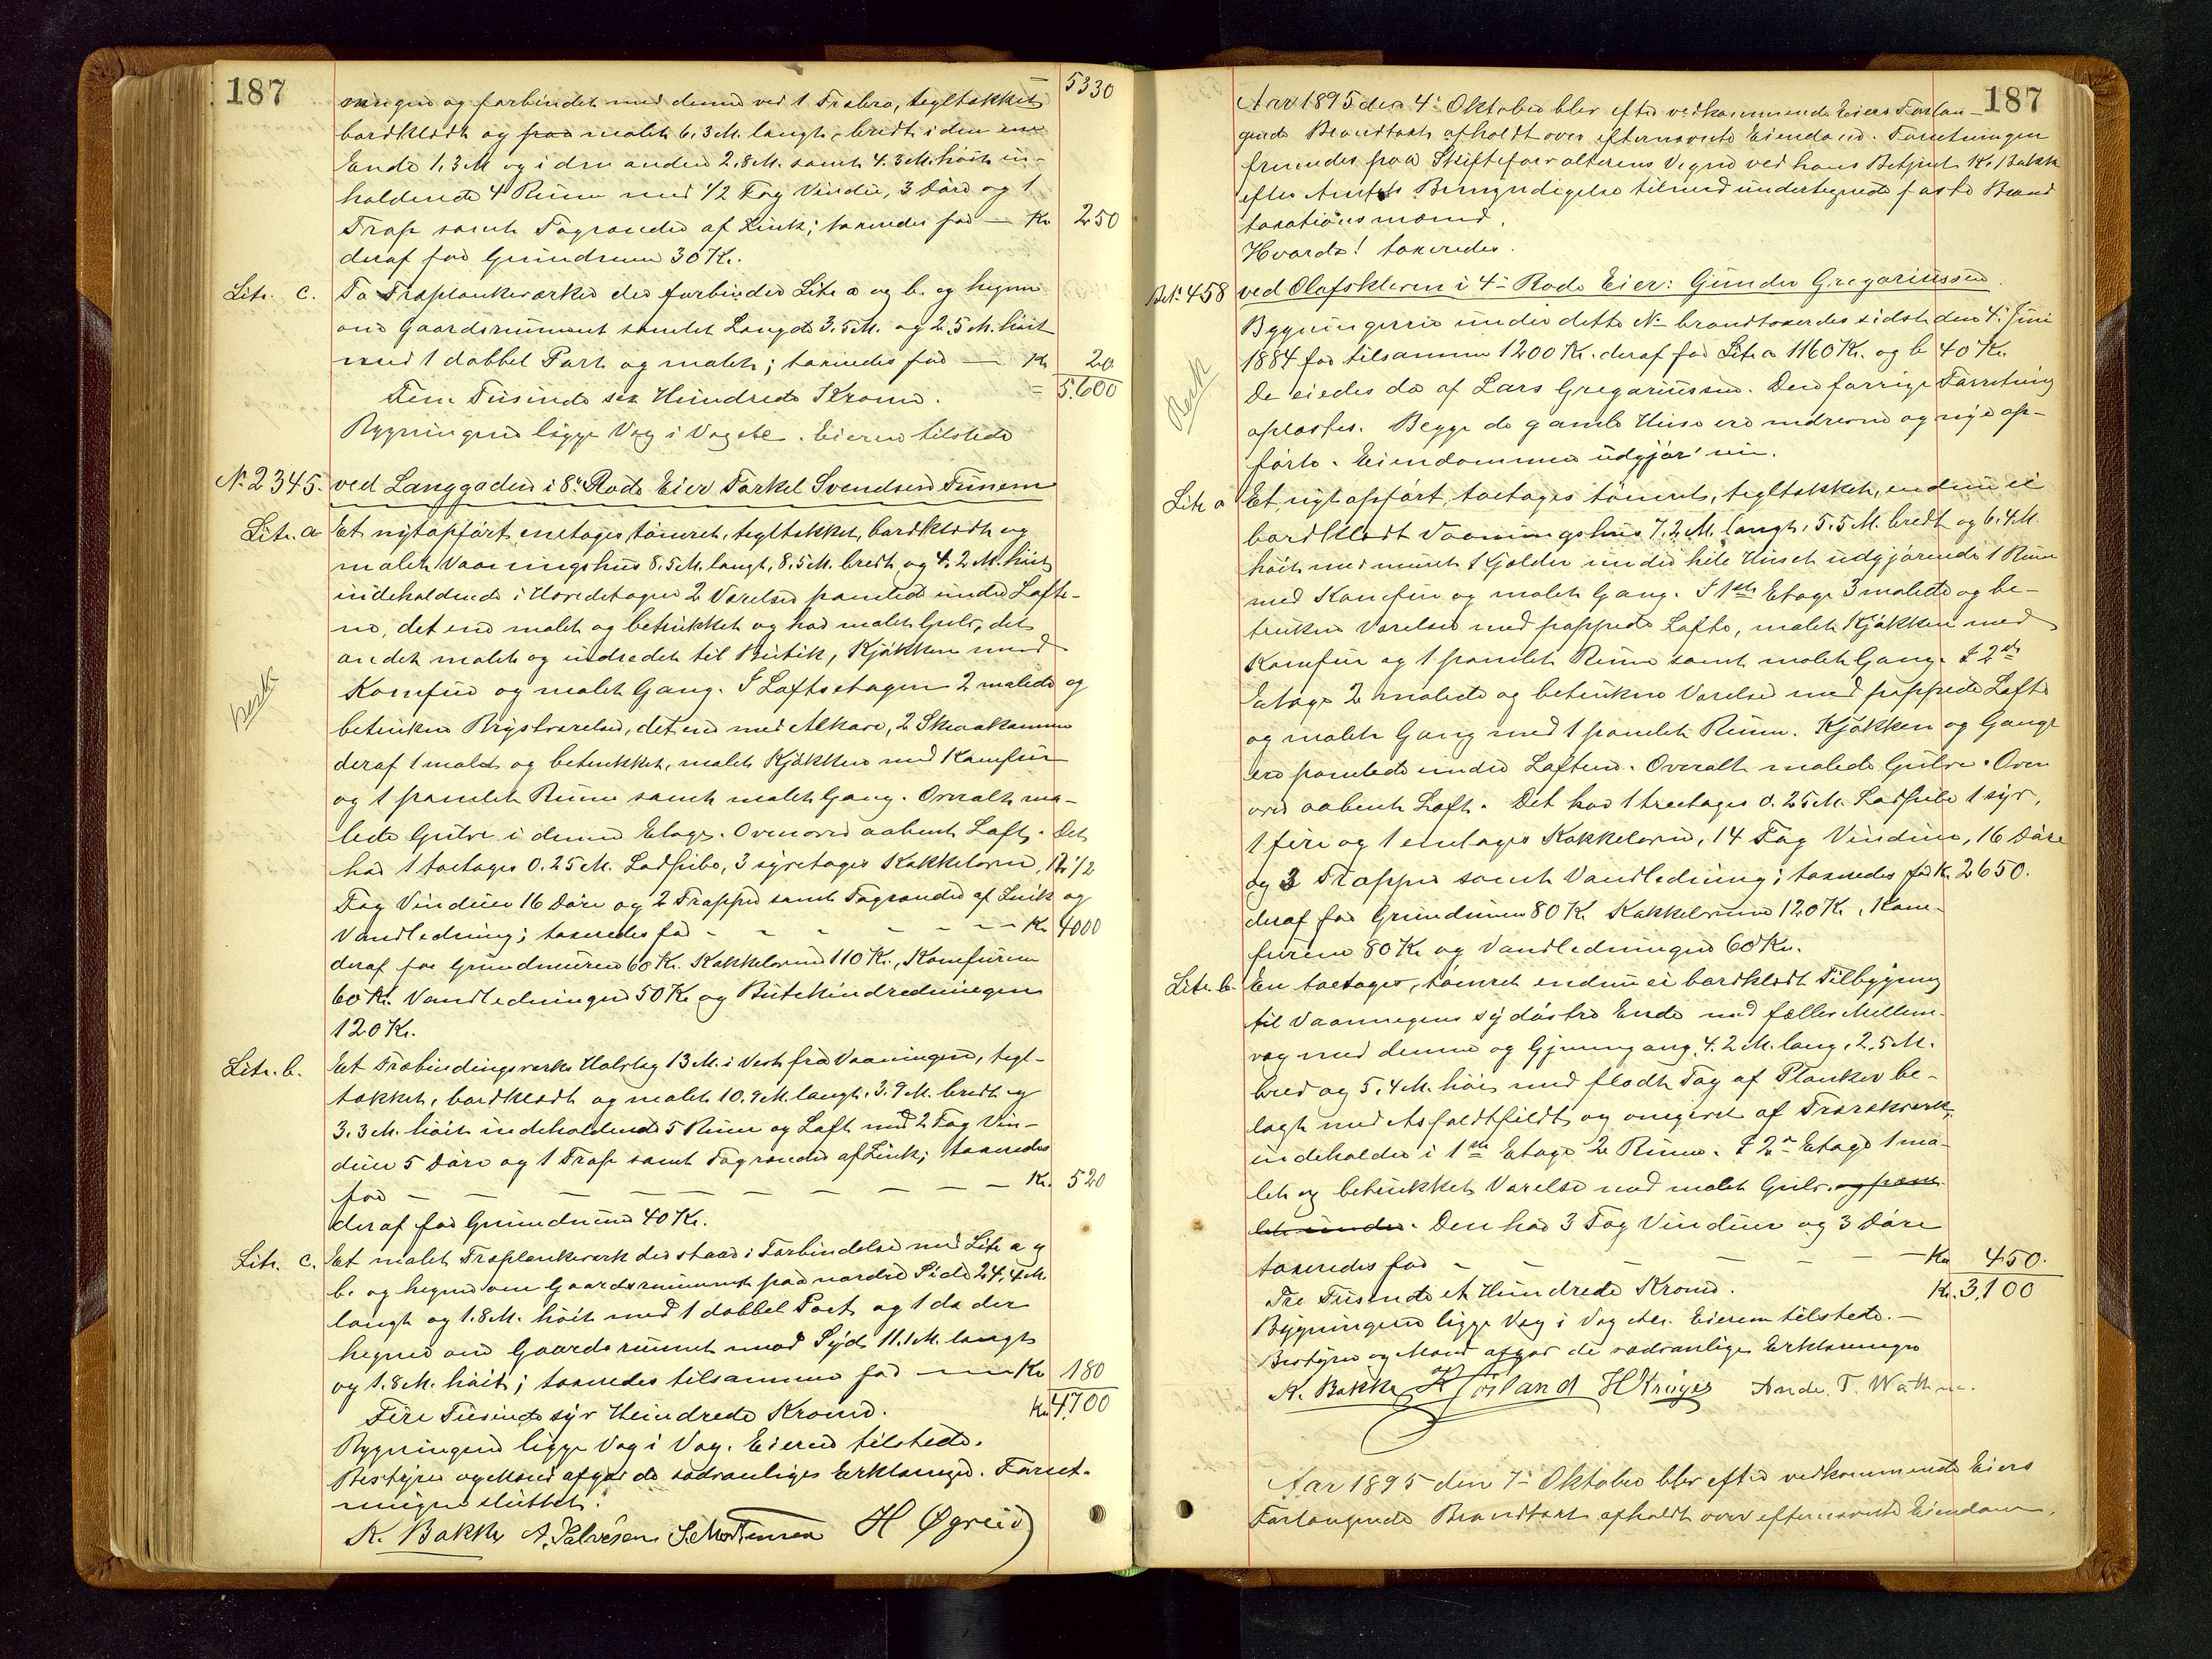 187
5330
ningen og forbindet med denne ved 1 Træbro, tegltækket
bordklædt og malet 6.3 M. langt, bredt i den ene
Ende 1.3 M og i den anden 2.8 M. samt 4.3 M. høit in-
holdende 4 Rum med 1/2 Fag Vindue, 3 Døre og 1
Trap samt Tagrender af Zink; taxeredes for — Kr 250
deraf for Grundmur 30 Kr.
Litr. c. To Træplankeværker der forbinder Litr a og b. og hegner
om Gaardsrummet samlet Længde 3.5 M. og 2.5 M. høit
med 1 dobbel Port og malet; taxeredes for — Kr 20
Fem Tusinde sex Hundrede Kroner. = 5.600
Bygningerne ligge Væg i Væg etc. Eieren tilstede
No 2345. ved Langgaden i 8de Rode Eier Torkel Svendsen Tunem
Litr. a Et nyt opført enetages, tømret, tegltækket, bordklædt og
malet Vaaningshus 8.5 M. langt, 8.5 M. bredt og 4.2 M. høit
indeholdende i Hovedetagen 2 Værelser panelede under Lofte-
ne, det ene malet og betrukket og har malet Gulv, det
andet malet og indredet til Butik, Kjøkken med
Komfur og malet Gang. I Loftsetagen 2 malede og
betrukne Brystværelser, det ene med Alkove, 2 Skraakammere
deraf 1 malet og betrukket, malet Kjøkken med Komfur
og 1 panelet Rum samt malet Gang. Overalt ma-
lede Gulve i denne Etage. Ovenover aabent Loft. Det
har 1 toetages 0.25 M. Ladpibe, 3 syvetages Kakkelovne, 12 1/2
Fag Vinduer 16 Døre og 2 Trapper samt Tagrender af Zink og
Vandledning; taxeredes for - - - - - - Kr. 4000
deraf for Grundmuren 60 Kr. Kakkelovnene 110 Kr., Komfurene
60 Kr. Vandledningen 50 Kr og Butikindredningen
120 Kr.
Litr. b. Et Træbindingsværks Halvtag 13 M. i Vest fra Vaaningen, tegl-
tækket, bordklædt og malet 10.9 M. langt, 3.9 M. bredt og
3.3 M. høit indeholdende 5 Rum og Loft med 2 Fag Vin-
duer 5 Døre og 1 Trap samt Tagrender af Zink; taxeredes
for — — — — — — — Kr. 520
deraf for Grundmur 40 Kr.
Litr. c. Et malet Træplankeverk der staar i Forbindelse med Litr a og
b. og hegner om Gaardsrummet paa nordre Side 24.4 M.
langt og 1.8 M. høit med 1 dobbel Port og 1 do der
hegner om Gaardsrummet mod Syd 11.1 M. langt
og 1.8 M. høit; taxeredes tilsammen for — Kr 180
Fire Tusinde syv Hundrede Kroner. Kr 4,700
Bygningerne ligge Væg i Væg. Eieren tilstede.
Bestyrer og Mænd afgav de sædvanlige Erklæringer. Forret-
ningen sluttet.
K. Bakke A. Salvesen S. Mortensen H Øgreid
187
Aar 1895 den 4de Oktober blev efter vedkommende Eiers Forlan-
gende Brandtaxt afholdt over efternævnte Eiendom. Forretningen
fremmedes paa Skifteforvalterens Vegne ved hans Betjent K. Bakke
efter Amtets Bemyndigelse tilmed undertegnede faste Brand
taxationsmænd.
Hvorda! taxeredes.
No 458 ved Olafskleven i 4de Rode Eier: Gunder Gregoriussen
Bygningerne under dette No brandtaxerdes sidst den 4de Juni
1884 for tilsammen 1200 Kr. deraf for Litr a 1160 Kr. og b 40 Kr.
De eiedes da af Lars Gregoriussen. Den forrige Forretning
oplæstes. Begge de gamle Huse ere nedrevne og nye op-
førte. Eiendommen udgjør nu.
Litr a Et nyt opført, toetages tømret, tegltækket, endnu ei
bordklædt Vaaningshus 7.2 M. langt, 5.5 M. bredt og 6.4 M.
høit med muret Kjælder under hele Huset udgjørende 1 Rum
med Komfur og malet Gang. I 1ste Etage 3 malede og be-
trukne Værelser med pappede Lofte, malet Kjøkken med
Komfur og 1 panelet Rum samt malet Gang. I 2den
Etage 2 malede og betrukne Værelser med pappede Lofte
og malet Gang med 1 panelet Rum. Kjøkken og Gange
ere panelede under Loftene. Overalt malede Gulve. Oven
over aabent Loft. Det har 1 treetages 0.25 M. Ladpibe 1 syv,
1 fire og 1 enetages Kakkelovn, 14 Fag Vinduer, 16 Døre
og 3 Trapper samt Vandledning; taxeredes for Kr. 2650.
deraf for Grundmuren 80 Kr. Kakkelovnene 120 Kr, Kom-
furene 80 Kr og Vandledningen 60 Kr.
Litr. b. En toetages, tømret endnu ei bordklædt Tilbygning
til Vaaningens sydøstre Ende med fælles Mellem-
væg med denne og Gjennemgang, 4.2 M. lang, 2.5 M.
bred og 5.4 M. høi med fladt Tag af Planker be-
lagt med Asfaldtfildt og omgivet af Træværk,
indeholder i 1ste Etage 2 Rum. I 2den Etage 1 ma-
let og betrukket Værelse med malet Gulv. og pane
let under. Den har 3 Fag Vinduer og 3 Døre
taxeredes for - - - - - Kr 450.
Tre Tusinde et Hundrede Kroner. Kr. 3,100
Bygningerne ligge Væg i Væg etc. Eieren tilstede. —
Bestyrer og Mænd afgav de sædvanlige Erklæringer
K. Bakke H Krüger Ande. T. Wathne.
Aar 1895 den 7de Oktober blev efter vedkommende Eiers
Forlangende Brandtaxt afholdt over efternævnte Eiendom.